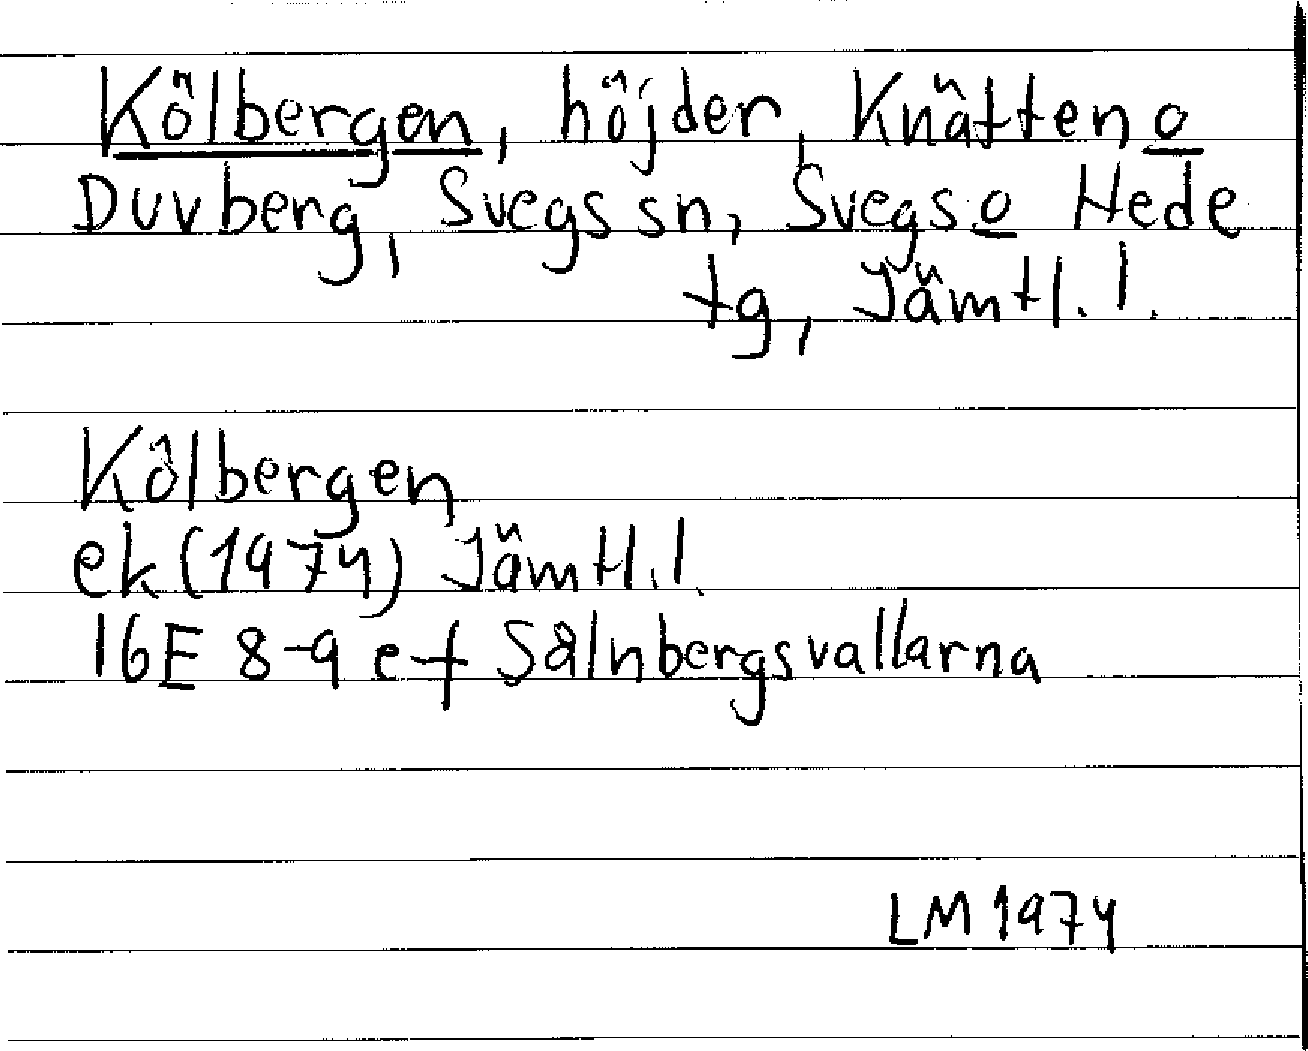 Kölbergen, höjder, Knätten o
Duvberg, Svegs sn, Svegs o Hede
tg, Jämtl. l.
Kölbergen
ek (1974) Jämtl. l.
16E 8-9 e-f Sålnbergsvallarna
LM 1974